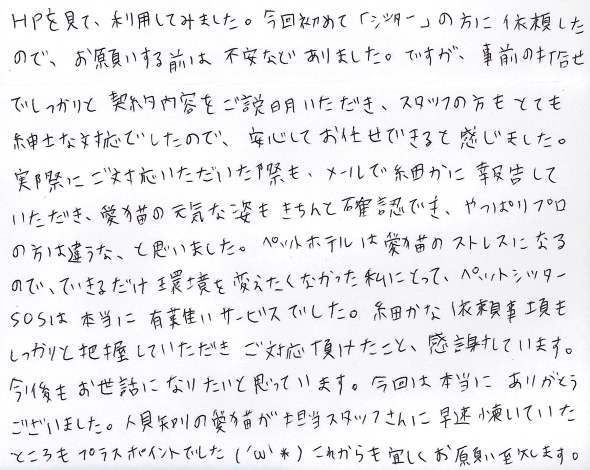 HPを見て、利用してみました。今回初めて「シッター」の方に依頼した
ので、お願いする前は不安などありました。ですが、事前の打合せ
でしっかりと契約内容をご説明いただき、スタッフの方もとても
紳士な対応でしたので、安心してお任せできると感じました。
実際にご対応いただいた際も、メールで細かに報告して
いただき、愛猫の元気な姿もきちんと確認でき、やっぱりプロ
の方は違うな、と思いました。ペットホテルは愛猫のストレスになる
ので、できるだけ環境を変えたくなかった私にとって、ペットシッター
SOSは本当に有難いサービスでした。細かな依頼事項も
しっかりと把握していただきご対応頂けたこと、感謝しています。
今後もお世話になりたいと思っています。今回は本当にありがとう
ございました。人見知りの愛猫が担当スタッフさんに早速懐いていた
ところもプラスポイントでした(´ω`*)これからも宜しくお願い致します。